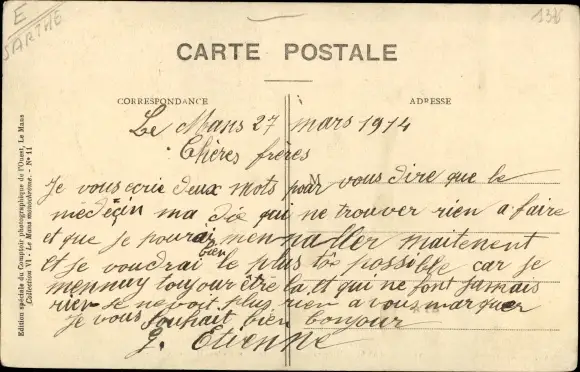 E
SARTHE
1376
CARTE POSTALE
CORRESPONDANCE
ADRESSE
Edition spéciale du Comptoir photographique de l'Ouest, Le Mans
(Collection VI - Le Mans manœuvres. - N° 11
M
Le Mans 27 mars 1914
Chères frères
Je vous ecrie deux mots pour vous dire que le
médeçin ma dit qui ne trouver rien a faire
et que je pourai mennaller maitenent
et je voudrai bien le plus tôx possible car je
mennuy toujour être la et qui ne font jamais
rien je ne voit plus rien a vous marquer
Je vous souhait bien bonjour
J. Etienne